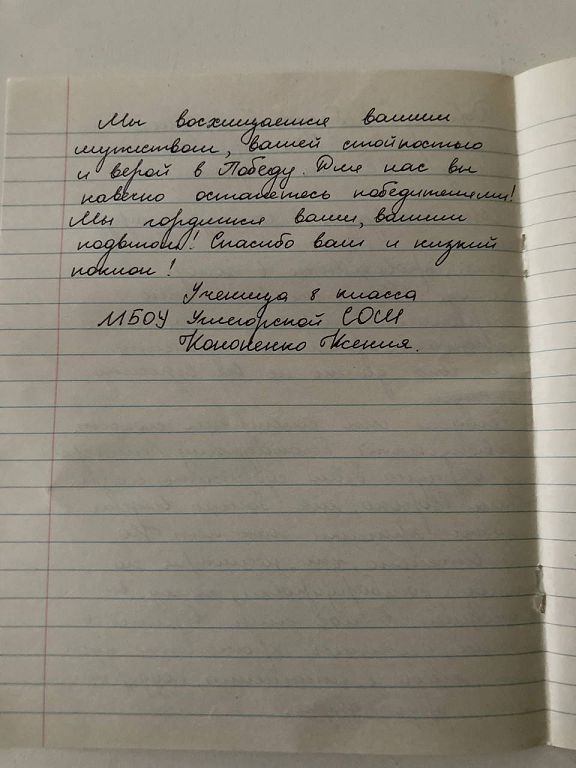 Мы восхищаемся вашим
мужеством, вашей стойкостью
и верой в Победу. Для нас вы
навечно останетесь победителями!
Мы гордимся вами, вашим
подвигом! Спасибо вам и низкий
поклон!
Ученица 8 класса
МБОУ Углегорской СОШ
Кононенко Ксения.